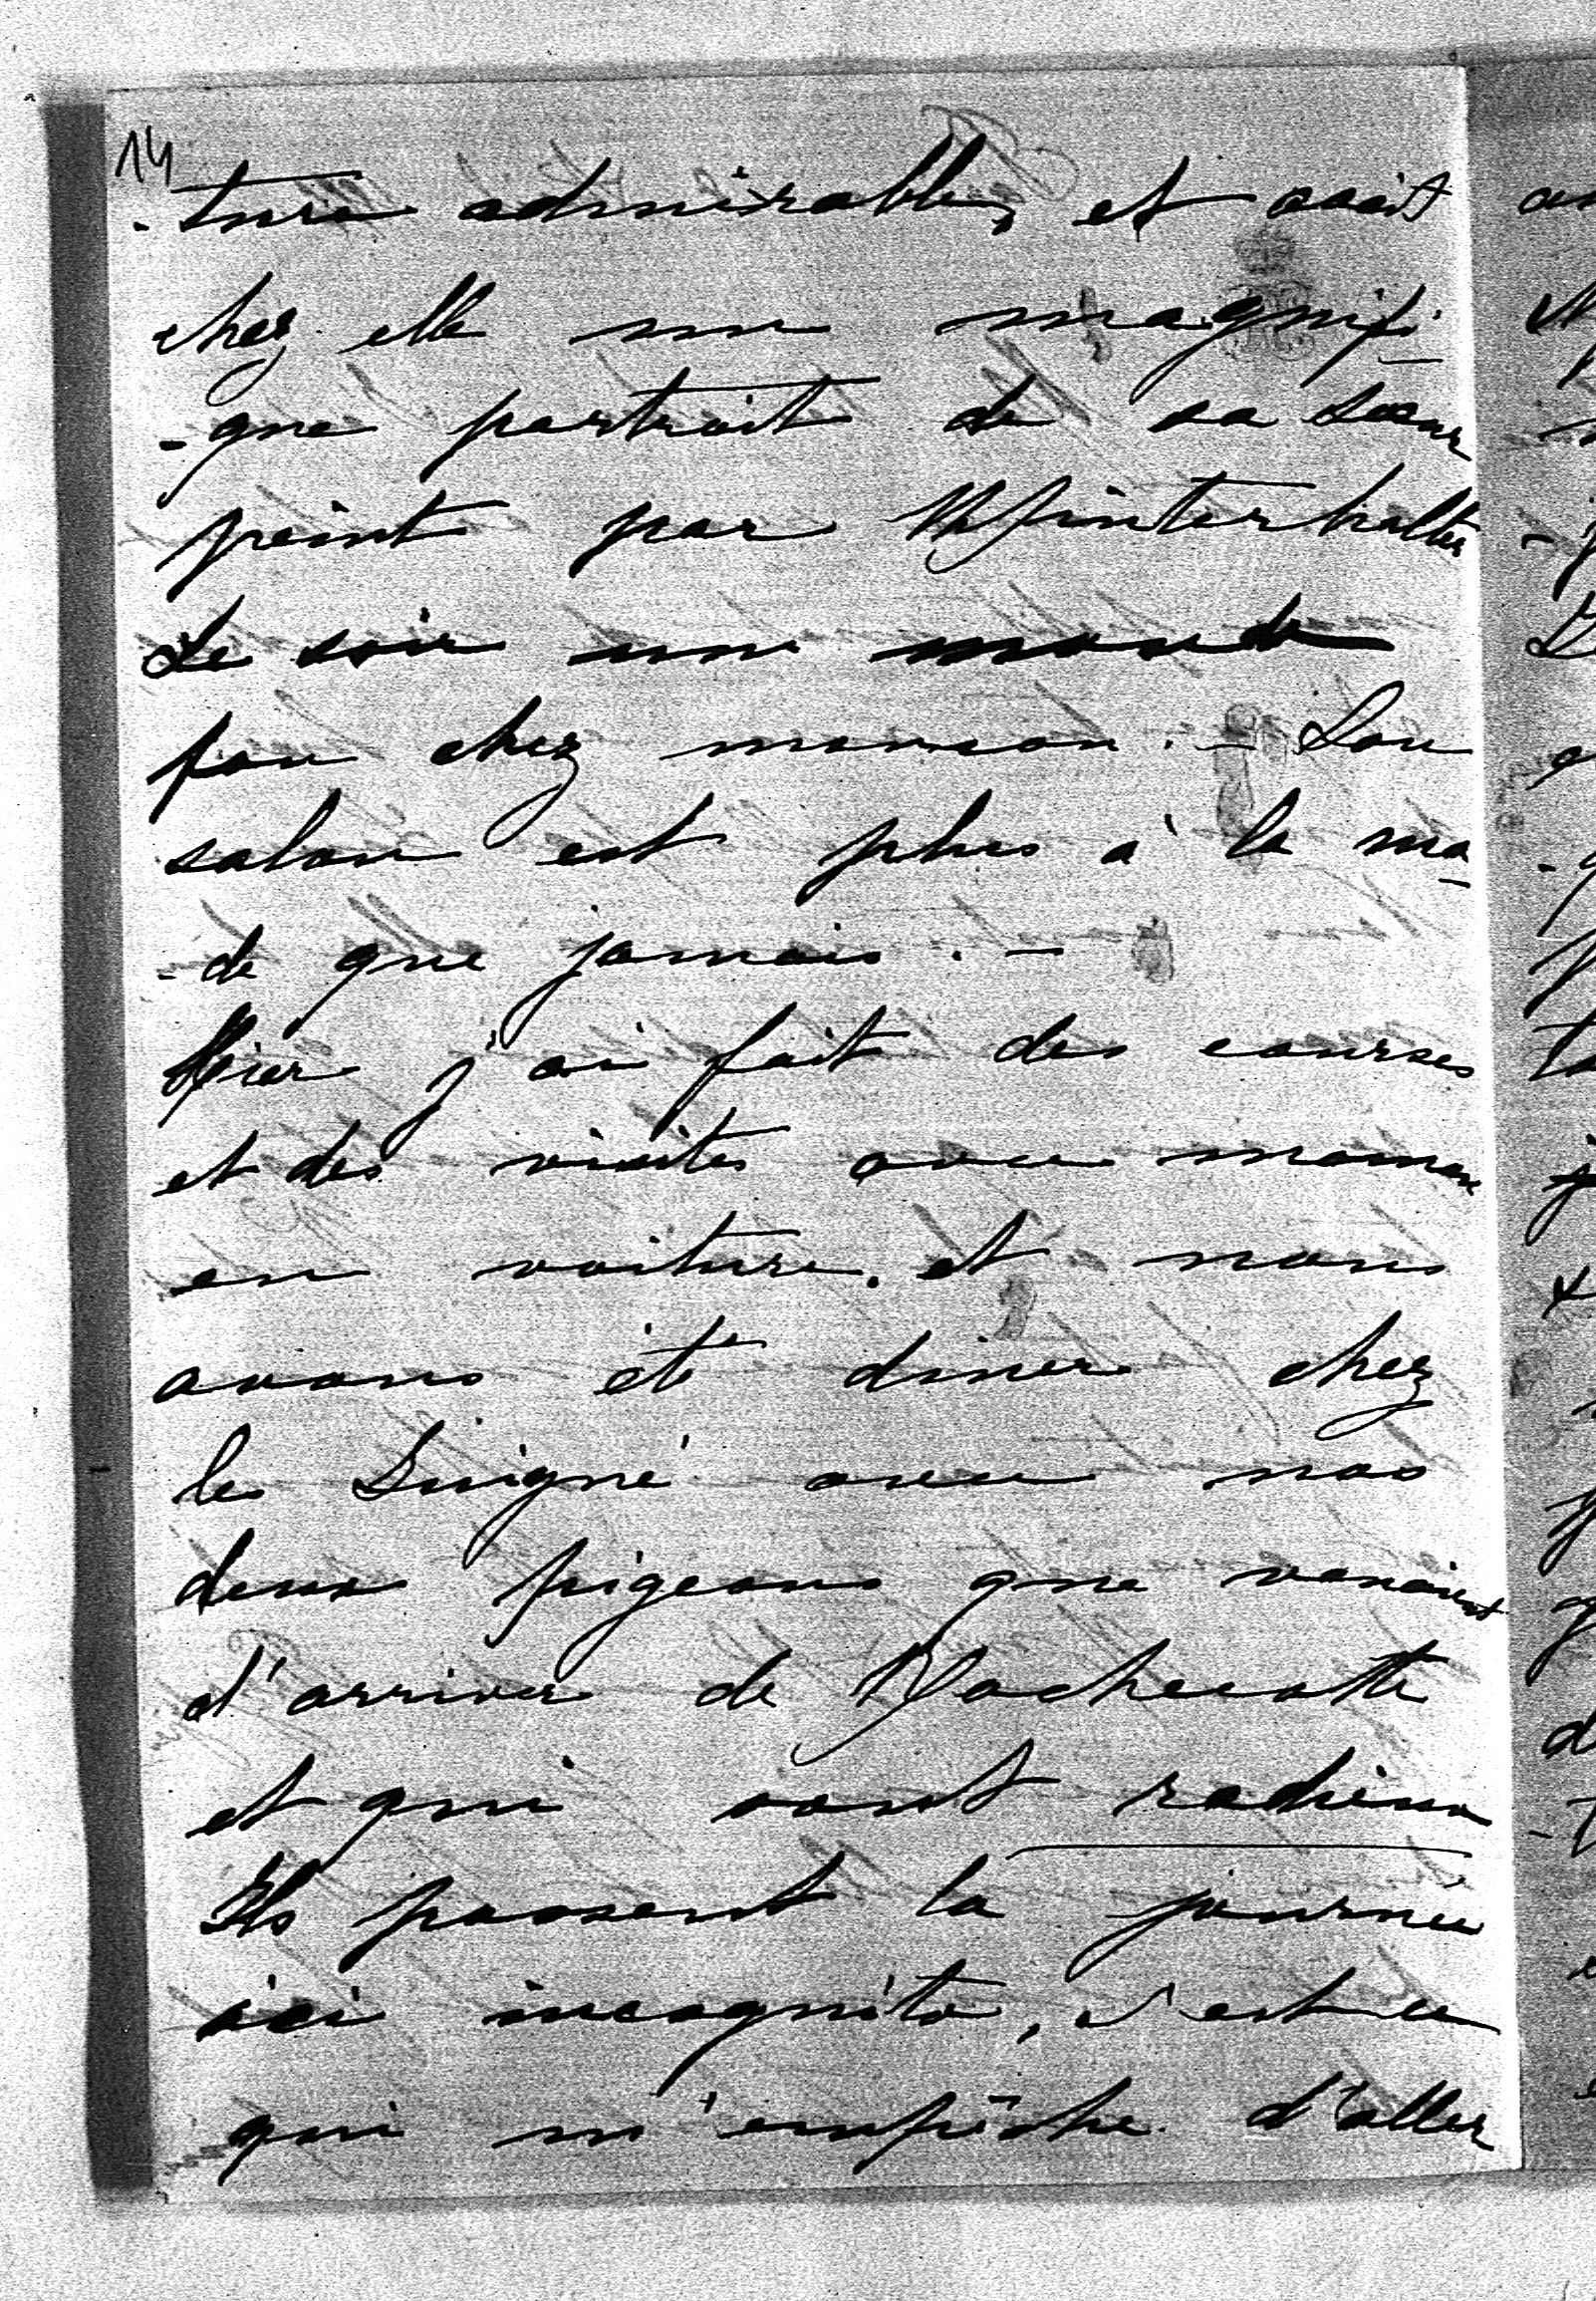 14
-ture admirable, et avait
chez elle un magnifi-
-que portrait de sa soeur
peint par Winterhalter
Le soir un monde
fou chez maman. - Son
salon est plus à la mo-
-de que jamais. -
Hier j'ai fait des courses
et des visites avec maman
en voiture. et nous
avons été diner chez
les Luigné avec nos
deux pigeons que venaient
d'arriver de Rochecotte
et qui sont radieux
Ils passent la journée
ici incognito, c'est ce
qui m'empêche d'aller